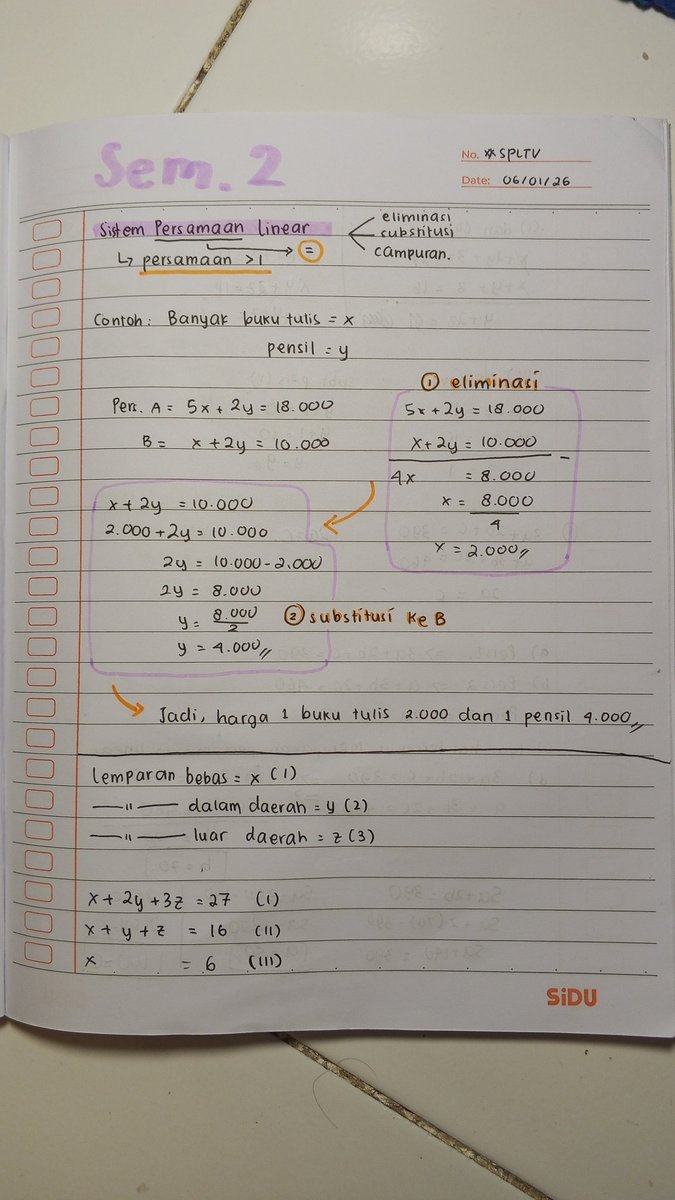 Sem. 2
No. ** SPLTV
Date: 06/01/26
Sistem Persamaan linear
eliminasi
substitusi
campuran.
=
↳ persamaan > 1
Contoh: Banyak buku tulis = x
pensil = y
① eliminasi
Pers. A = 5x + 2y = 18.000
B = x + 2y = 10.000
5x + 2y = 18.000
x + 2y = 10.000 -
4x = 8.000
x = 8.000
4
x = 2.000,,
x + 2y = 10.000
2.000 + 2y = 10.000
2y = 10.000 - 2.000
2y = 8.000
y = 8.000
2
y = 4.000,,
② substitusi ke B
Jadi, harga 1 buku tulis 2.000 dan 1 pensil 4.000,,
lemparan bebas = x (1)
—〃— dalam daerah = y (2)
—〃— luar daerah = z (3)
x + 2y + 3z = 27 (I)
x + y + z = 16 (II)
x = 6 (III)
SiDU